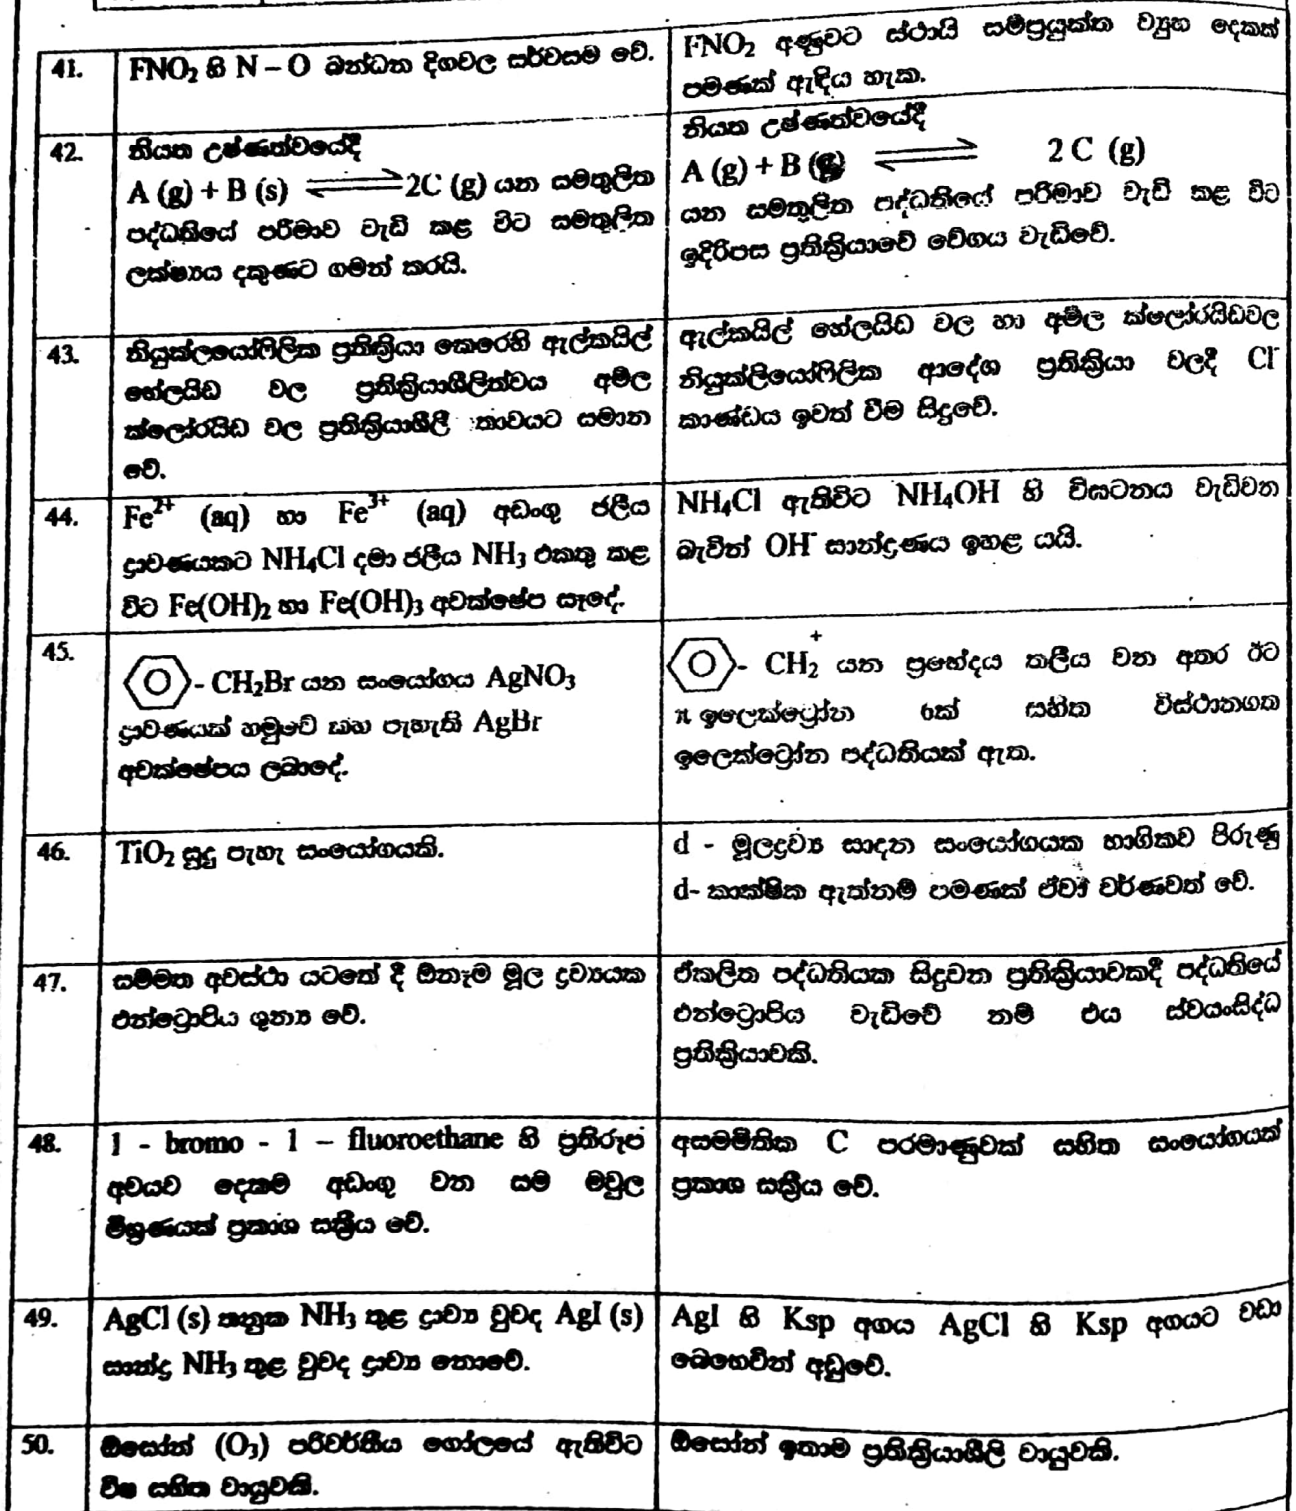 41.
FNO2 හි N – O බන්ධන දිගවල සර්වසම වේ.
FNO2 අණුවට ස්ථායි සම්ප්‍රයුක්ත ව්‍යුහ දෙකක්
පමණක් ඇඳිය හැක.
42.
නියත උෂ්ණත්වයේදී
A (g) + B (s) ⇌ 2C (g) යන සමතුලිත
පද්ධතියේ පරිමාව වැඩි කළ විට සමතුලිත
ලක්ෂ්‍යය දකුණට ගමන් කරයි.
නියත උෂ්ණත්වයේදී
A (g) + B (g) ⇌ 2 C (g)
යන සමතුලිත පද්ධතියේ පරිමාව වැඩි කළ විට
ඉදිරිපස ප්‍රතික්‍රියාවේ වේගය වැඩිවේ.
43.
නියුක්ලයෝෆිලික ප්‍රතික්‍රියා කෙරෙහි ඇල්කයිල්
හේලයිඩ වල ප්‍රතික්‍රියාශීලිත්වය අම්ල
ක්ලෝරයිඩ වල ප්‍රතික්‍රියාශීලී තාවයට සමාන
වේ.
ඇල්කයිල් හේලයිඩ වල හා අම්ල ක්ලෝරයිඩවල
නියුක්ලියෝෆිලික ආදේශ ප්‍රතික්‍රියා වලදී Cl⁻
කාණ්ඩය ඉවත් වීම සිදුවේ.
44.
Fe²⁺ (aq) හා Fe³⁺ (aq) අඩංගු ජලීය
ද්‍රාවණයකට NH4Cl දමා ජලීය NH3 එකතු කළ
විට Fe(OH)2 හා Fe(OH)3 අවක්ෂේප සෑදේ.
NH4Cl ඇතිවිට NH4OH හි විඝටනය වැඩිවන
බැවින් OH⁻ සාන්ද්‍රණය ඉහළ යයි.
45.
- CH2Br යන සංයෝගය AgNO3
ද්‍රාවණයක් හමුවේ කහ පැහැති AgBr
අවක්ෂේපය ලබාදේ.
- CH2⁺ යන ප්‍රභේදය තලීය වන අතර ඊට
π ඉලෙක්ට්‍රෝන 6ක් සහිත විස්ථානගත
ඉලෙක්ට්‍රෝන පද්ධතියක් ඇත.
46.
TiO2 සුදු පැහැ සංයෝගයකි.
d - මූලද්‍රව්‍ය සාදන සංයෝගයක භාගිකව පිරුණු
d- කාක්ෂික ඇත්නම් පමණක් ඒවා වර්ණවත් වේ.
47.
සම්මත අවස්ථා යටතේ දී ඕනෑම මූල ද්‍රව්‍යයක
එන්ට්‍රොපිය ශුන්‍ය වේ.
ඒකලිත පද්ධතියක සිදුවන ප්‍රතික්‍රියාවකදී පද්ධතියේ
එන්ට්‍රොපිය වැඩිවේ නම් එය ස්වයංසිද්ධ
ප්‍රතික්‍රියාවකි.
48.
1 - bromo - 1 – fluoroethane හි ප්‍රතිරූප
අවයව දෙකම අඩංගු වන සම මවුල
මිශ්‍රණයක් ප්‍රකාශ සක්‍රීය වේ.
අසමමිතික C පරමාණුවක් සහිත සංයෝගයක්
ප්‍රකාශ සක්‍රීය වේ.
49.
AgCl (s) තනුක NH3 තුළ ද්‍රාව්‍ය වුවද AgI (s)
සාන්ද්‍ර NH3 තුළ වුවද ද්‍රාව්‍ය නොවේ.
AgI හි Ksp අගය AgCl හි Ksp අගයට වඩා
බෙහෙවින් අඩුවේ.
50.
ඕසෝන් (O3) පරිවර්තීය ගෝලයේ ඇතිවිට
විෂ සහිත වායුවකි.
ඕසෝන් ඉතාම ප්‍රතික්‍රියාශීලි වායුවකි.